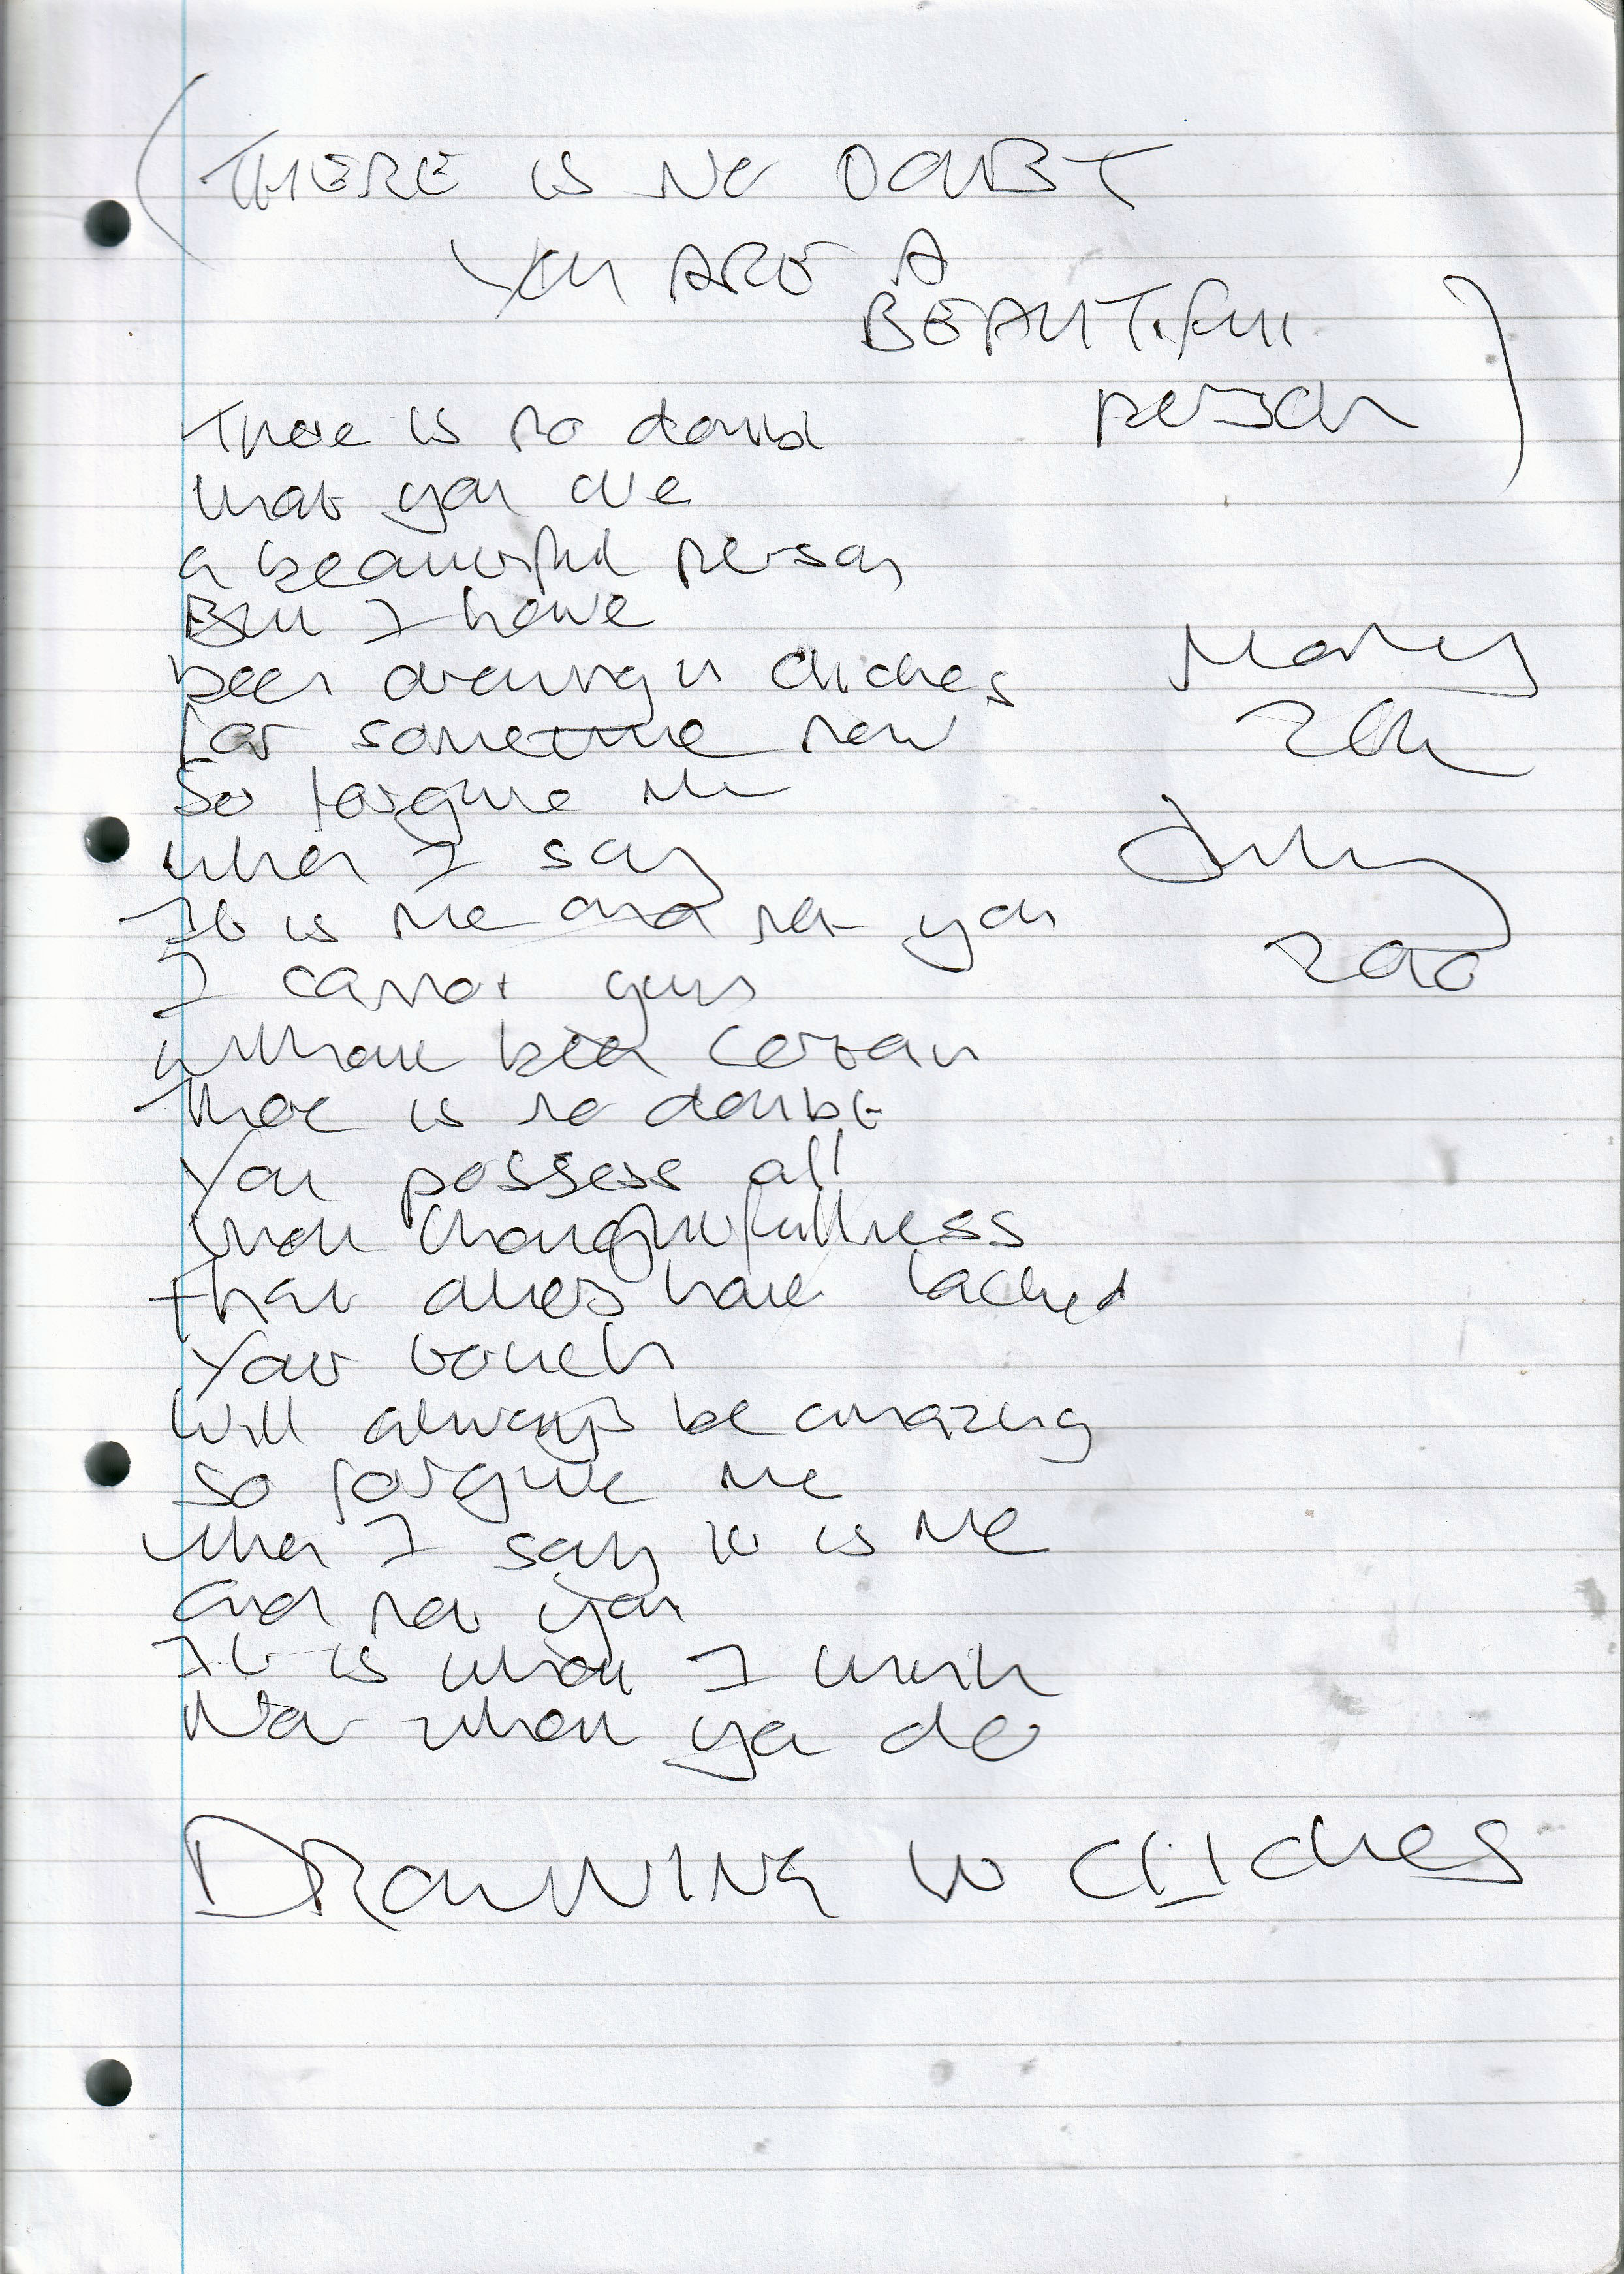 (THERE IS NO DOUBT
YOU ARE A
BEAUTIFUL
person)
There is no doubt
that you are
a beautiful person
But I have
been drowning in cliches
for some time now
So forgive me
when I say
It is me and not you
I cannot guess
without been certain
There is no doubt
You possess all
that thoughtfullness
that others have lacked
Your touch
Will always be amazing
so forgive me
when I say it is me
and not you
It is what I wish
Not what you do
DROWNING IN CLICHES
Monday
20th
July